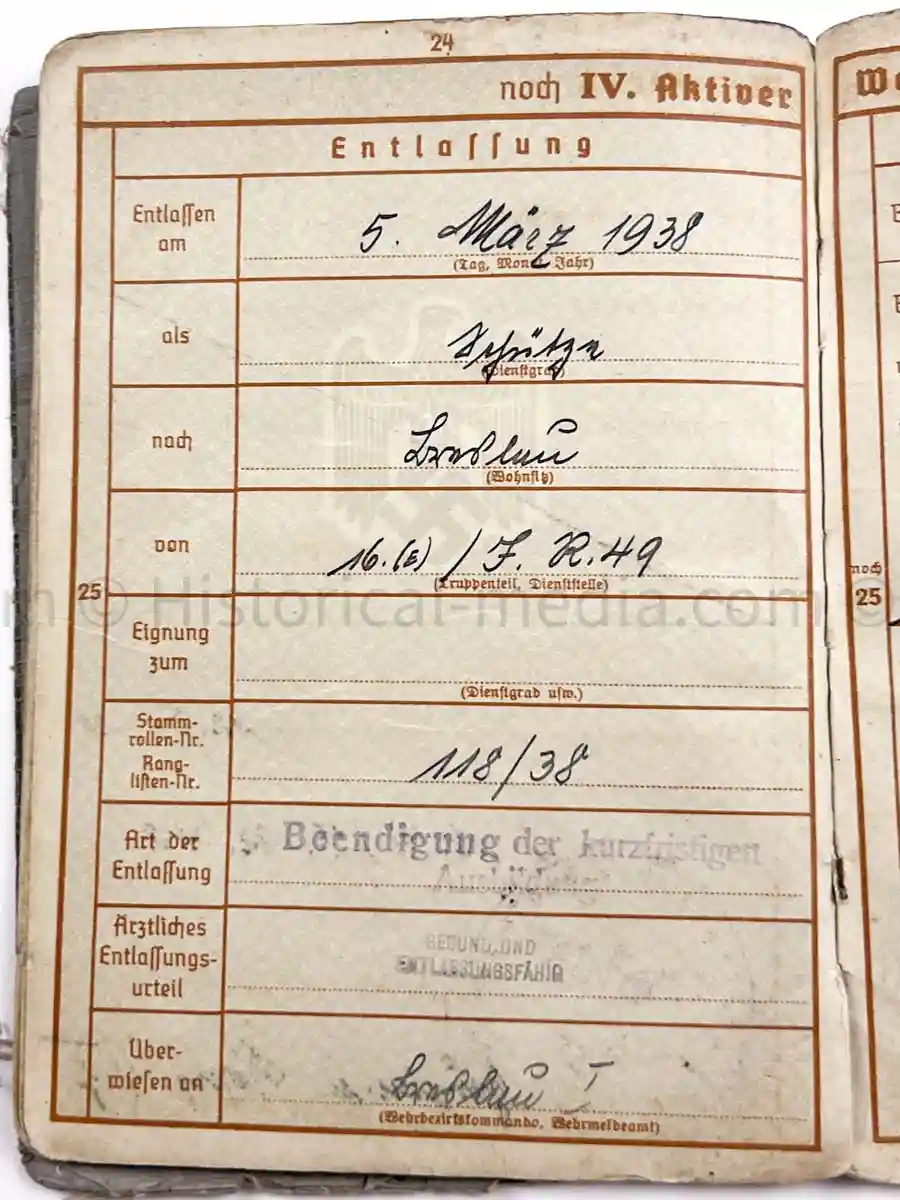 24
noch IV. Aktiver
We
Entlassung
Entlassen
am
5. März 1938
(Tag, Monat, Jahr)
als
Schütze
(Dienstgrad)
nach
Breslau
(Wohnsitz)
von
16.(E) / I. R. 49
(Truppenteil, Dienststelle)
25
noch
25
© Historical-media.com ©
Eignung
zum
(Dienstgrad usw.)
Stamm-
rollen-Nr.
Rang-
listen-Nr.
118/38
Art der
Entlassung
Beendigung der kurzfristigen
Ausbildung
Ärztliches
Entlassungs-
urteil
GESUND UND
ENTLASSUNGSFÄHIG
Über-
wiesen an
Breslau I
(Wehrbezirkskommando, Wehrmeldeamt)